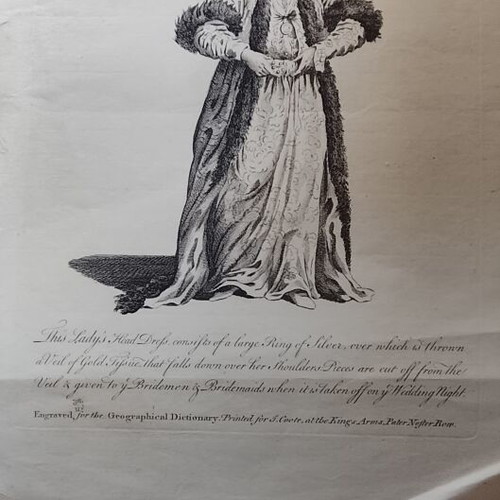 This Lady's Head Dress, consists of a large Ring of Silver, over which is thrown
a Veil of Gold Tissue, that falls down over her Shoulders. Pieces are cut off from the
Veil & given to yͤ Bridemen & Bridemaids when it is taken off on yͤ Wedding Night.
Engraved, for the Geographical Dictionary. Printed for J. Coote, at the Kings Arms, Pater Noster Row.